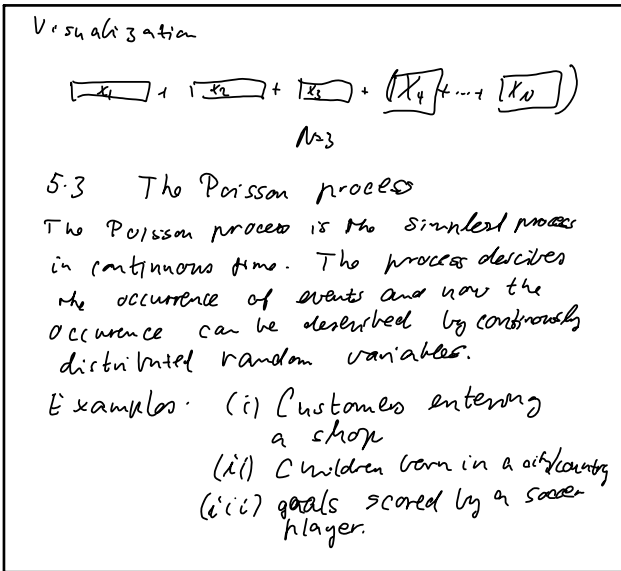 Visualization
X1 + X2 + X3 + (X4 + ... + XN)
N=3
5.3 The Poisson process
The Poisson process is the simplest process
in continuous time. The process descibes
the occurrence of events and how the
occurence can be described by continously
distributed random variables.
Examples. (i) Customers entering
a shop
(ii) Children born in a city/country
(iii) goals scored by a soccer
player.